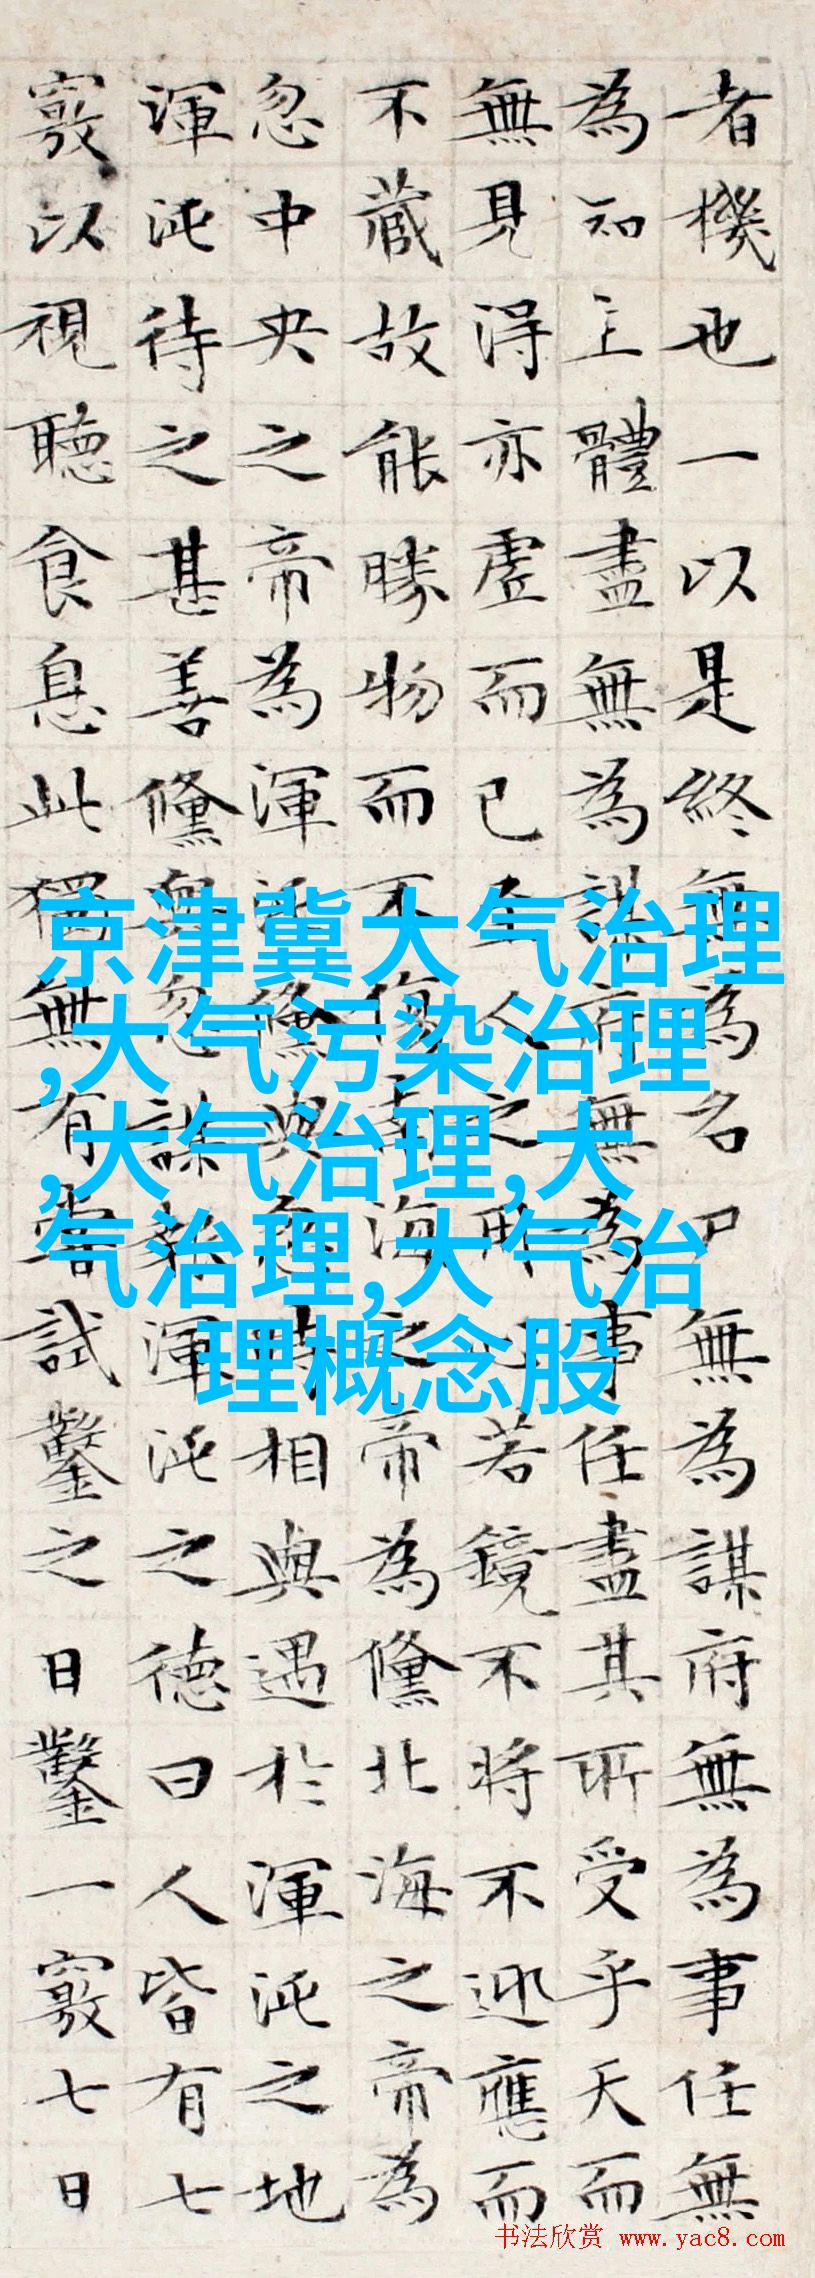 者機也一以是終無為名尸無為謀府無為事任無
為知主體盡無為謀府無為事任盡其所受乎天而
無見得亦虛而已至人之用心若鏡不將不迎應而
不藏故能勝物而不傷南海之帝為儵北海之帝為
忽中央之帝為渾沌儵與忽時相與遇於渾沌之地
渾沌待之甚善儵與忽謀報渾沌之德曰人皆有七
竅以視聽食息此獨無有嘗試鑿之日鑿一竅七日
京津冀大气治理
,大气污染治理
,大气治理,大
气治理,大气治
理概念股
书法欣赏 www.yac8.com